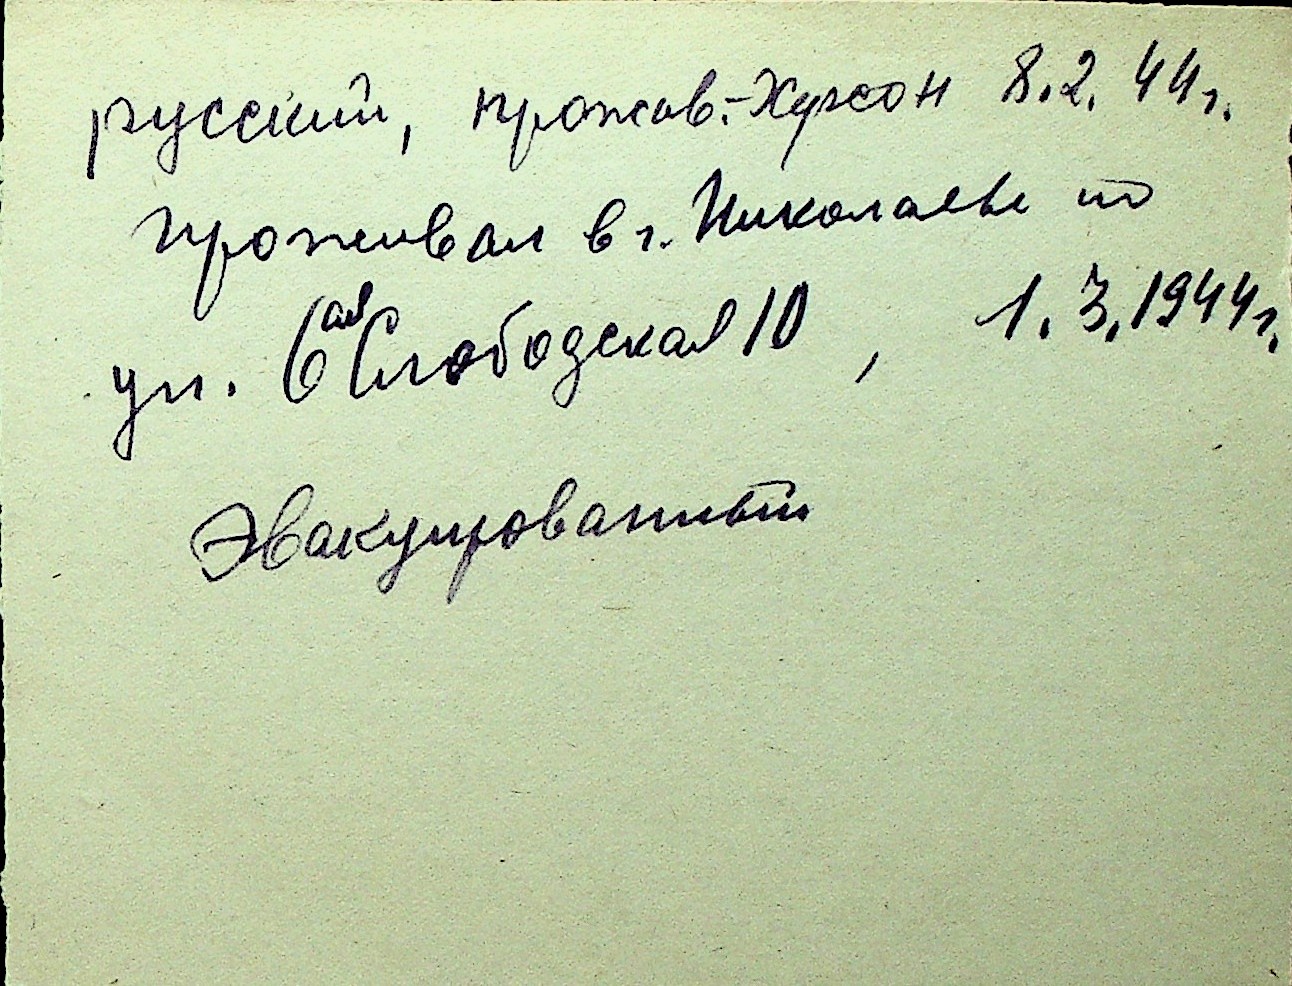 русский, прожив.-Херсон 8.2.44г.
проживал в г. Николаеве по
ул. 6ая Слободская 10, 1.3.1944г.
Эвакуированный